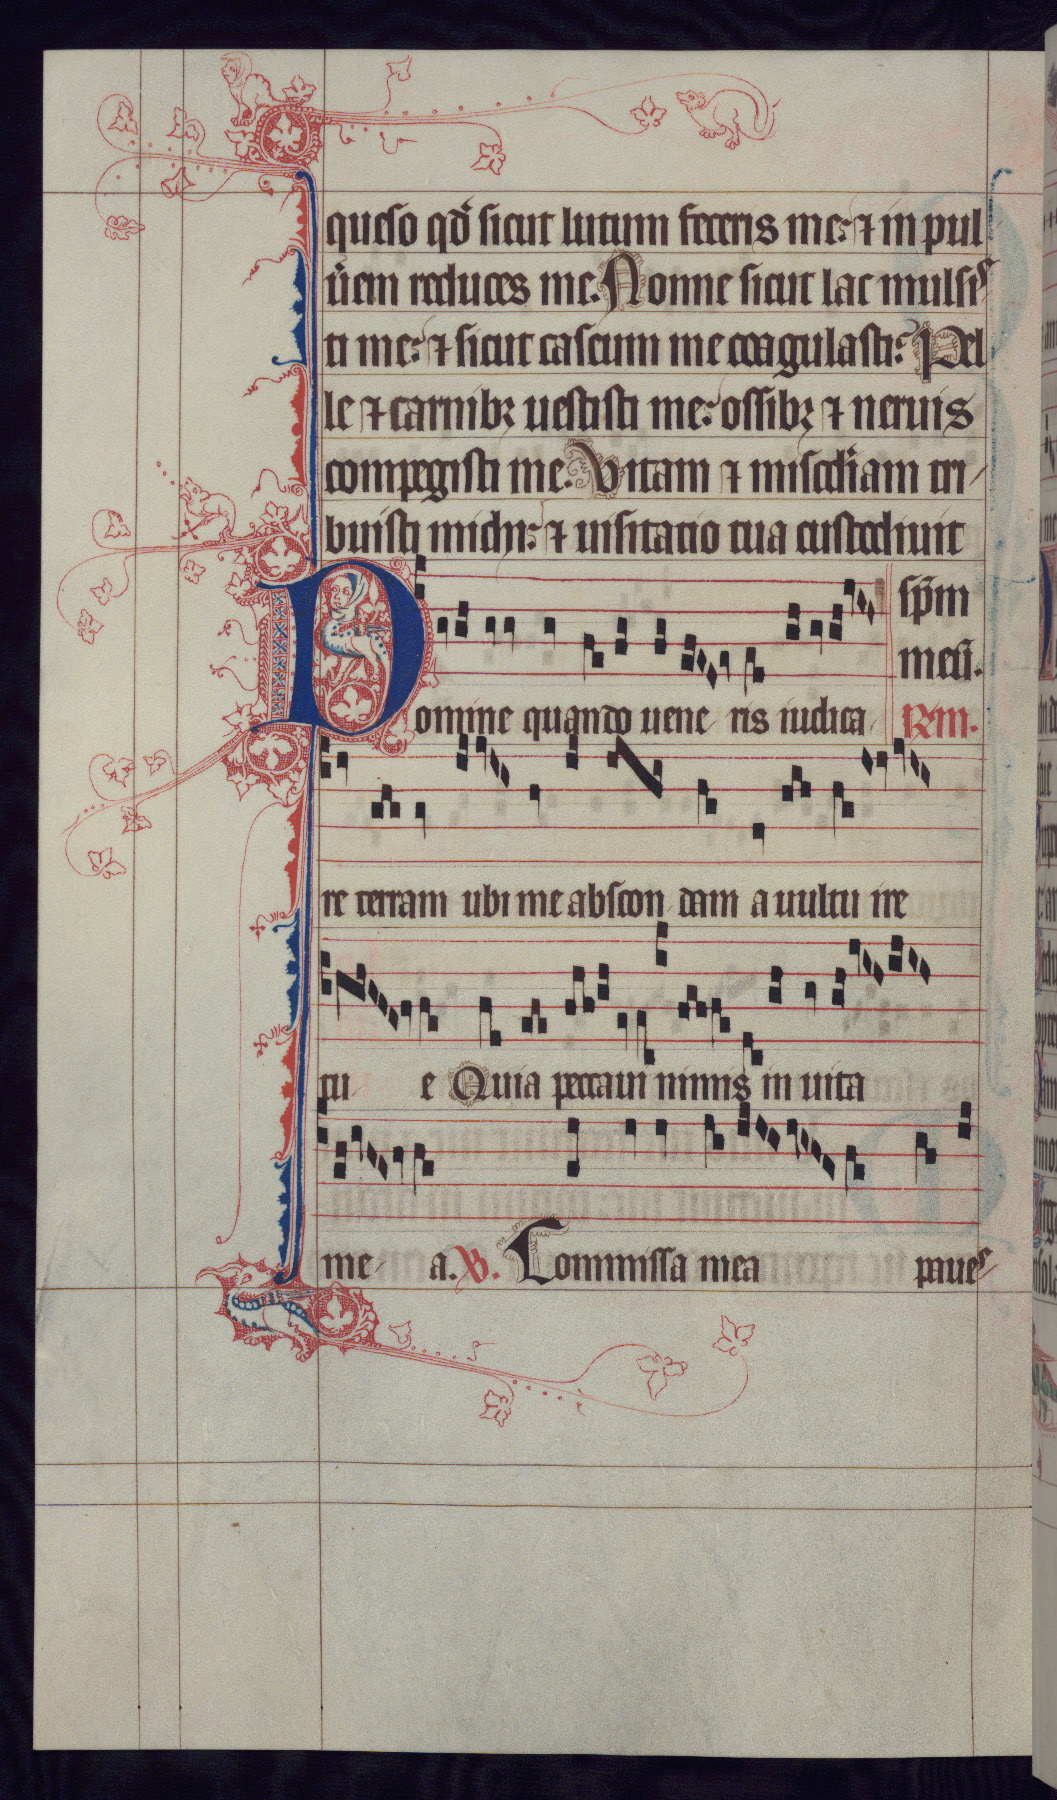 queso qđ sicut lutum feceris me: ⁊ in pul
ũem reduces me. Nonne sicut lac mulsi
ti me: ⁊ sicut caseum me coagulasti: Pel
le ⁊ carnibꝫ uestisti me: ossibꝫ ⁊ neruis
compegisti me. Vitam ⁊ mis̃c̃diam tri
buisti michi: ⁊ uisitatio tua custodiuit
sp̃m
meũ.
Domine quando uene ris iudica Rm.
re terram ubi me abscon dam a uultu ire
tu e Quia peccaui nimis in uita
me a. V. Commissa mea paues